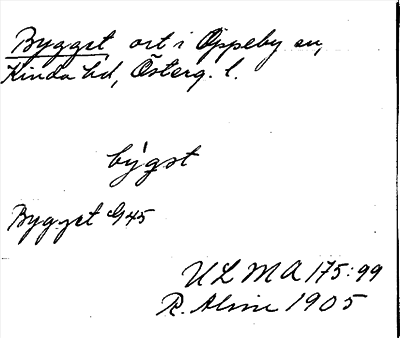 Bygget ort i Oppeby sn,
Kinda hd, Österg. l.
býgst
Bygget G45
ULMA 175:99
R. Alme 1905